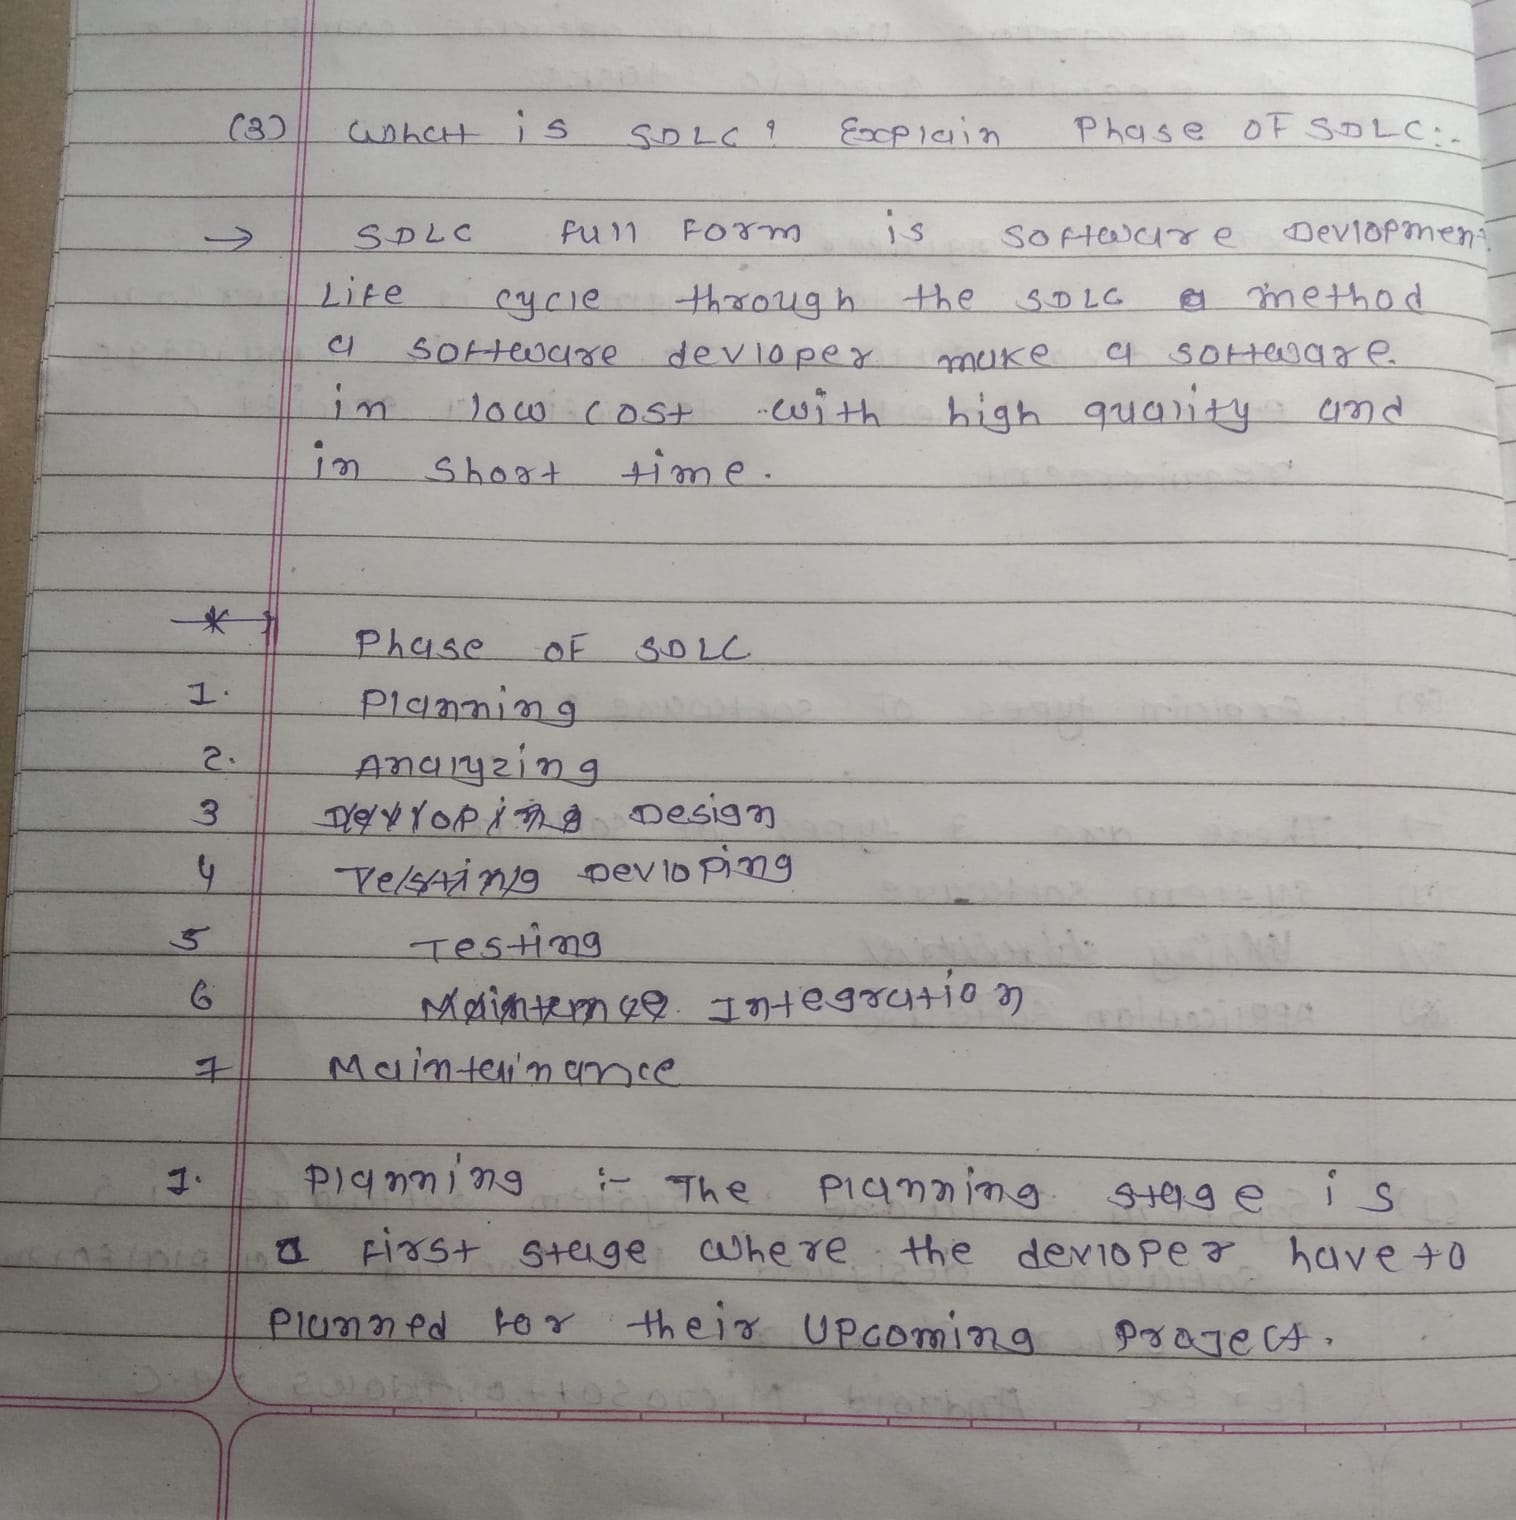 (3) What is SDLC? Explain Phase OF SDLC:-
→ SDLC Full Form is Software Devlopment
Life cycle through the SDLC a method
a software devloper make a software.
in low cost with high quality and
in short time.
Phase OF SDLC
1. Planning
2. Analyzing
3 Devloping Design
4 Testing Devloping
5 Testing
6 Maintence. Integration
7 Maintainance
1. Planning :- The Planning stage is
a First stage where the devloper have to
Planned for their upcoming Project.